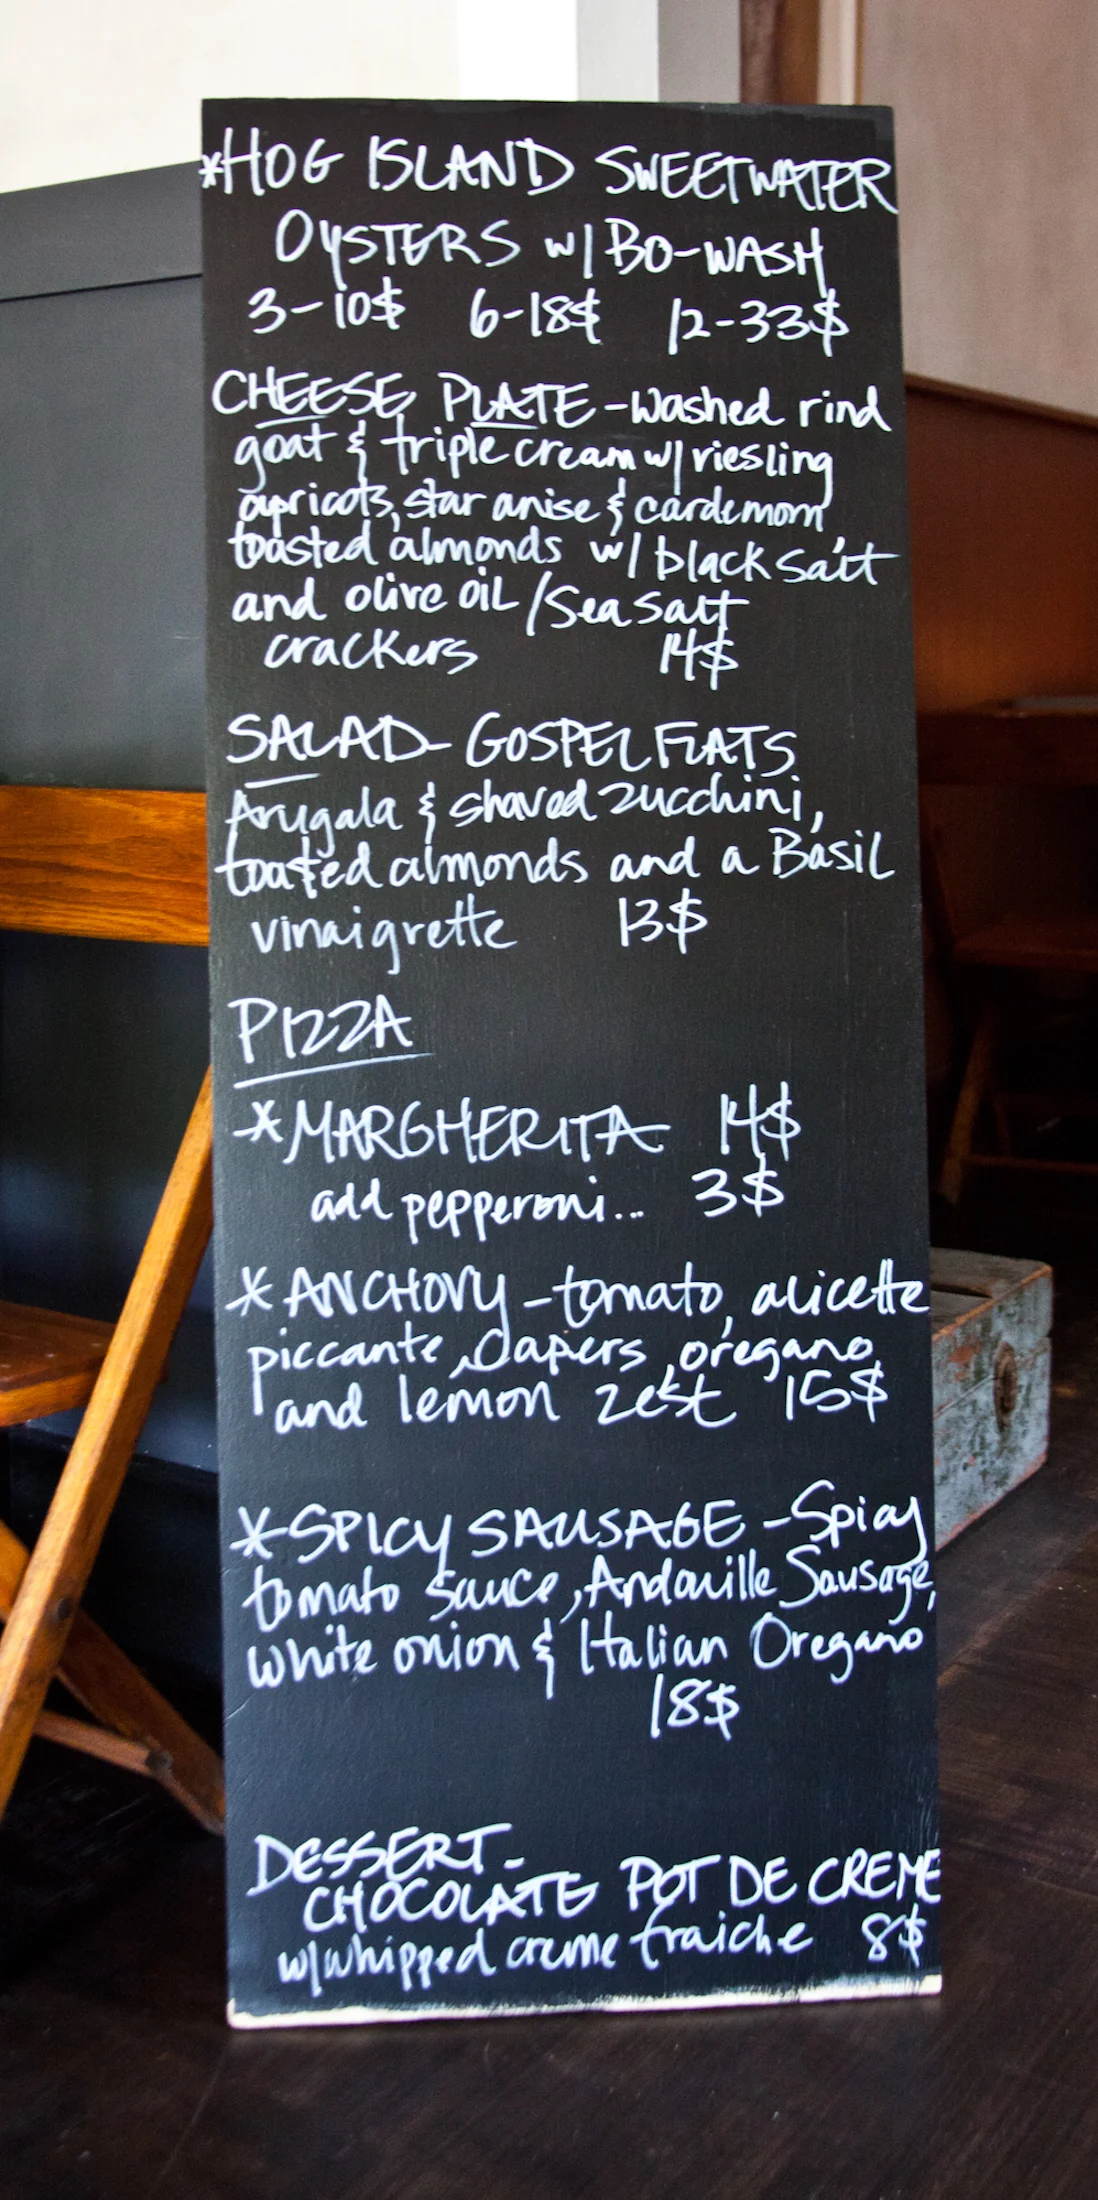 *HOG ISLAND SWEETWATER
OYSTERS w/ BO-WASH
3-10$ 6-18$ 12-33$
CHEESE PLATE - washed rind
goat & triple cream w/ riesling
apricots, star anise & cardemom
toasted almonds w/ black salt
and olive oil / Sea salt
crackers 14$
SALAD - GOSPEL FLATS
Arugala & shaved zucchini,
toasted almonds and a Basil
vinaigrette 13$
PIZZA
*MARGHERITA 14$
add pepperoni... 3$
*ANCHOVY - tomato, alicette
piccante, capers, oregano,
and lemon zest 15$
*SPICY SAUSAGE - Spicy
tomato sauce, Andouille Sausage,
white onion & Italian Oregano
18$
DESSERT -
CHOCOLATE POT DE CREME
w/ whipped creme fraiche 8$